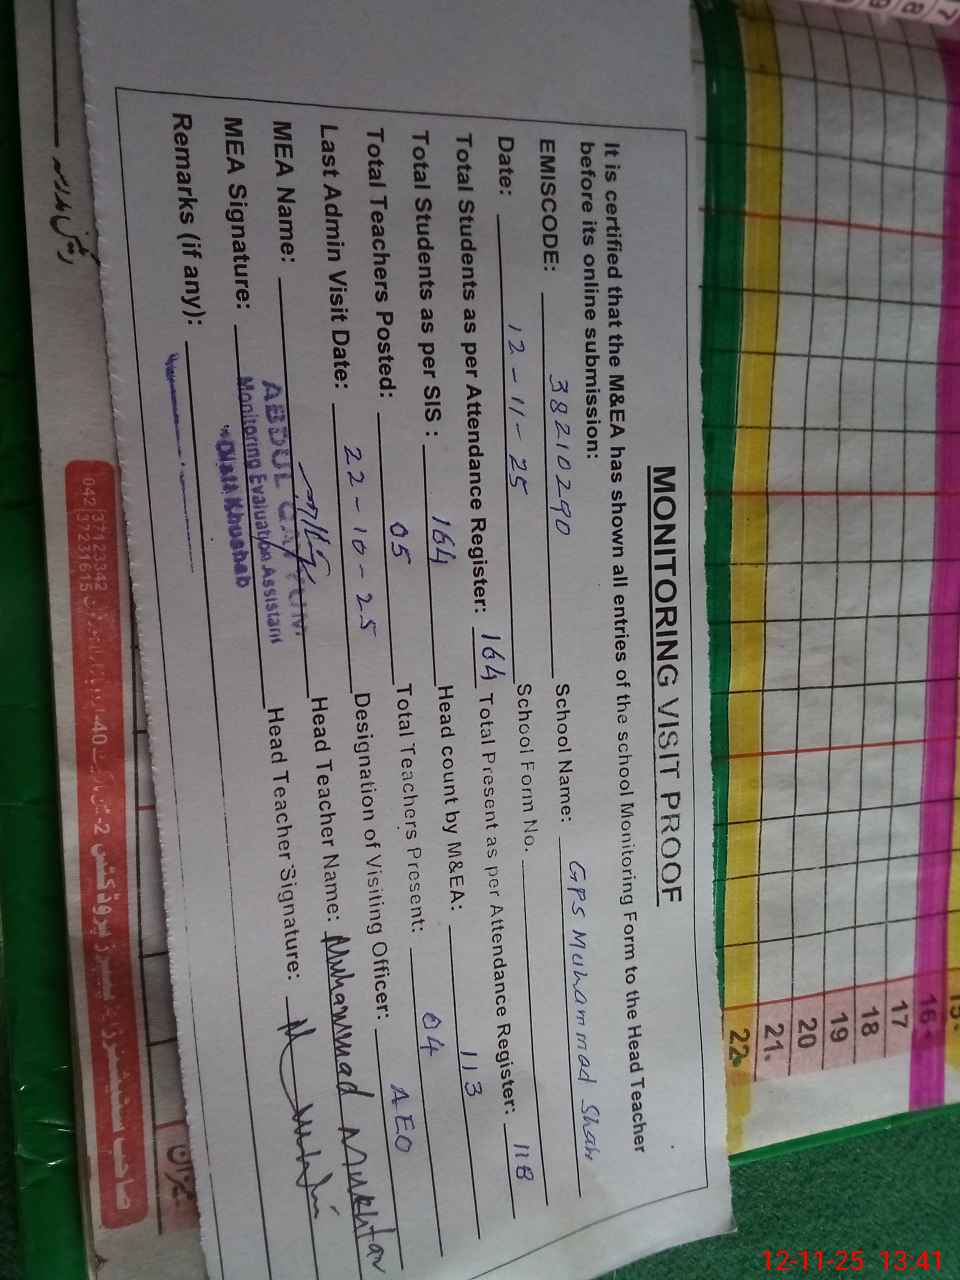 MONITORING VISIT PROOF
It is certified that the M&EA has shown all entries of the school Monitoring Form to the Head Teacher
before its online submission:
EMISCODE: 38210290 School Name: GPS Muhammad Shah
Date: 12-11-25 School Form No.
Total Students as per Attendance Register: 164 Total Present as per Attendance Register: 118
Total Students as per SIS : 164 Head count by M&EA: 113
Total Teachers Posted: 05 Total Teachers Present: 04
Last Admin Visit Date: 22-10-25 Designation of Visiting Officer: AEO
MEA Name: Head Teacher Name: Muhammad Mukhtar
ABDUL
MEA Signature: Head Teacher Signature:
Monitoring Evaluation Assistant
Khushab
Remarks (if any):
15
16
17
18
19
20
21
22
7
8
9
042
37123342
37231615
12-11-25 13:41